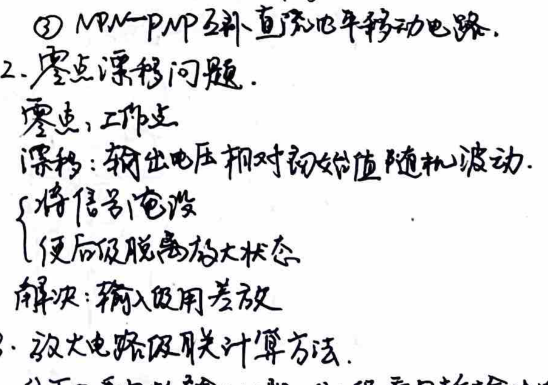 ③ NPN—PNP互补直流电平移动电路.
2. 零点漂移问题.
零点: 工作点
漂移: 输出电压相对初始值随机波动.
将信号淹没
使后级脱离放大状态
解决: 输入级用差放
3. 放大电路级联计算方法.